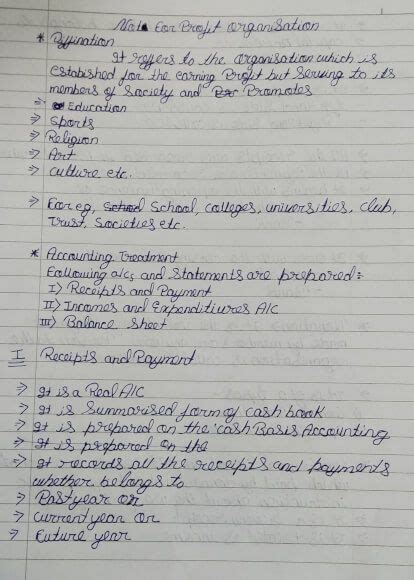 Not For Profit organisation
* Deffination
It reffers to the organisation which is
Estabished for the earning Profit but Serving to its
members of Society and Promotes
⇒ Education
⇒ Sports
⇒ Religion
⇒ Art
⇒ Culture etc.
⇒ For eg, School, Colleges, universities, Club,
Trust, Societies etc.
* Accounting Treatment
Following a/c, and Statements are prepared:-
I) Receipts and Payment
II) Incomes and Expenditiures A/C
III) Balance Sheet
I Receipts and Payment
⇒ It is a Real A/C
⇒ It is Summarised form of cash book
⇒ It is prepared on the cash Basis Accounting
⇒ It is prepared on the
⇒ It records all the receipts and payments
whether belongs to
⇒ Past year or
⇒ Current year or
⇒ Future year